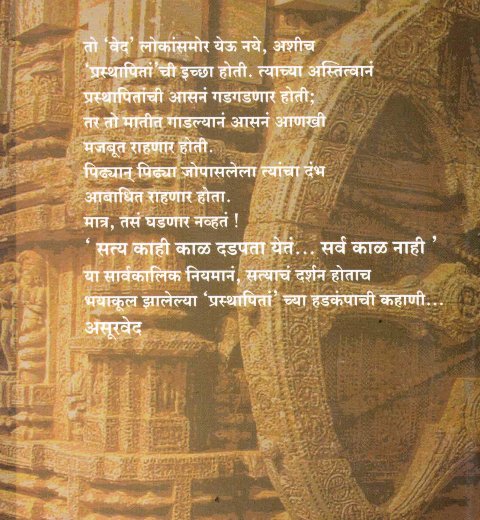 तो ‘वेद’ लोकांसमोर येऊ नये, अशीच
‘प्रस्थापितां’ची इच्छा होती. त्याच्या अस्तित्वानं
प्रस्थापितांची आसनं गडगडणार होती;
तर तो मातीत गाडल्यानं आसनं आणखी
मजबूत राहणार होती.
पिढ्यान् पिढ्या जोपासलेला त्यांचा दंभ
आबाधित राहणार होता.
मात्र, तसं घडणार नव्हतं !
‘ सत्य काही काळ दडपता येतं... सर्व काळ नाही ’
या सार्वकालिक नियमानं, सत्याचं दर्शन होताच
भयाकूल झालेल्या ‘प्रस्थापितां’ च्या हडकंपाची कहाणी...
असूरवेद